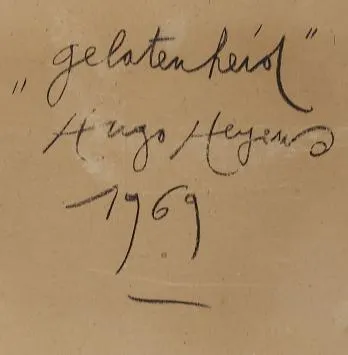 „gelatenheid”
Hugo Heyens
1969